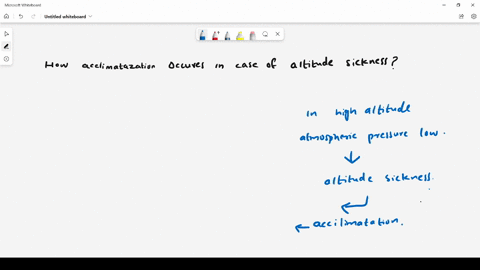 Microsoft Whiteboard
Untitled whiteboard
How acclimatazation occures in case of altitude sickness?
In high altitude
atmospheric pressure low.
altitude sickness.
accilimatation.